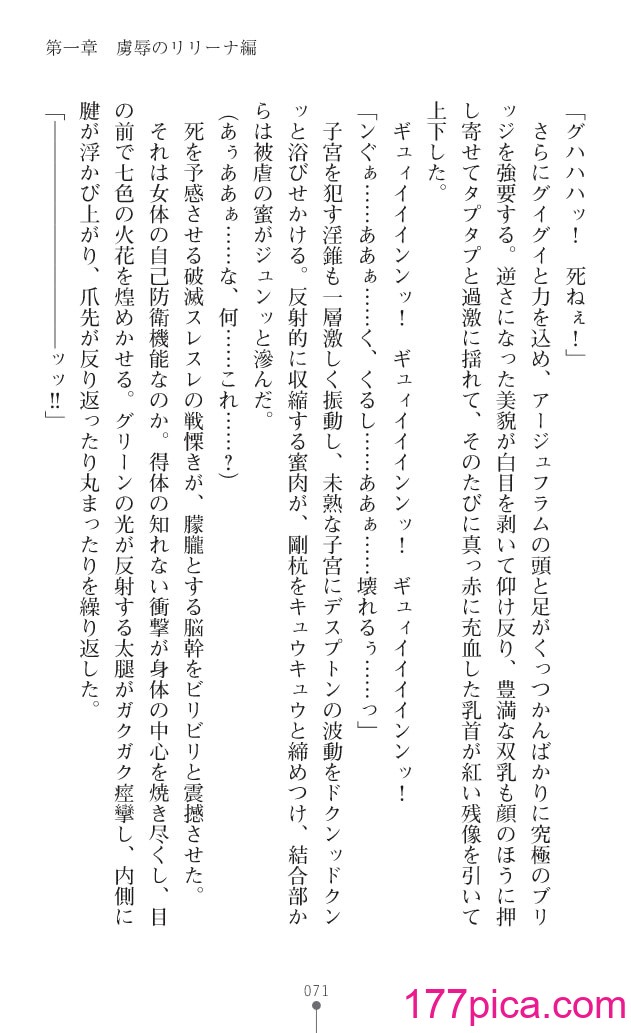 第一章　虜辱のリリーナ編
「グハハハッ！　死ねぇ！」
　さらにグイグイと力を込め、アージュフラムの頭と足がくっつかんばかりに究極のブリ
ッジを強要する。逆さになった美貌が白目を剥いて仰け反り、豊満な双乳も顔のほうに押
し寄せてタプタプと過激に揺れて、そのたびに真っ赤に充血した乳首が紅い残像を引いて
上下した。
　ギュィイイインンッ！　ギュィイイイインンッ！　ギュィイイイインンッ！
「ンぐぁ……ああぁ……く、くるし……ああぁ……壊れるぅ……っ」
　子宮を犯す淫錐も一層激しく振動し、未熟な子宮にデスプトンの波動をドクンッドクン
ッと浴びせかける。反射的に収縮する蜜肉が、剛杭をキュウキュウと締めつけ、結合部か
らは被虐の蜜がジュンッと滲んだ。
（あぅああぁ……な、何……これ……？）
　死を予感させる破滅スレスレの戦慄きが、朦朧とする脳幹をビリビリと震撼させた。
　それは女体の自己防衛機能なのか。得体の知れない衝撃が身体の中心を焼き尽くし、目
の前で七色の火花を煌めかせる。グリーンの光が反射する太腿がガクガク痙攣し、内側に
腱が浮かび上がり、爪先が反り返ったり丸まったりを繰り返した。
「――――――――――ッッ!!」
071
177pica.com